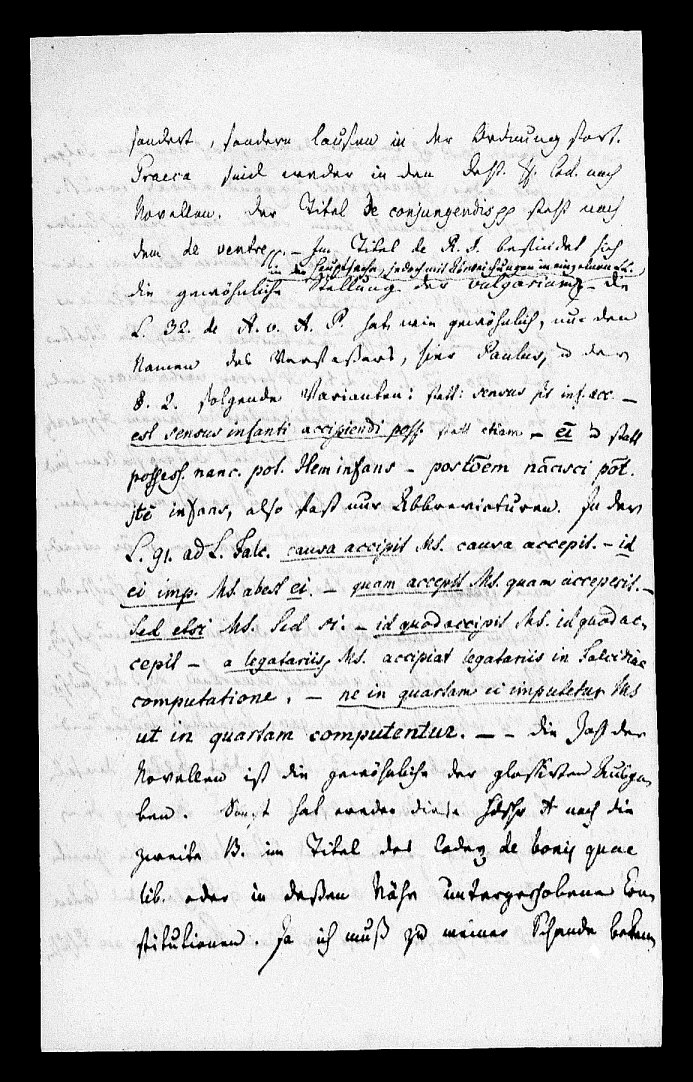 sondert, sondern laufen in der Ordnung fort.
Graeca sind weder in den Dest. ff. Cod. noch
Novellen. Der Titel de conjungendis pp steht nach
dem de ventre pp. – Im Titel de R. J. befindet sich
in der Hauptsache, jedoch mit Abweichungen im einzelnen
die gewöhnliche Stellung des vulgarium – die
L. 32. de A. v. A. P. hat wie gewöhnlich, nur den
Namen des Verfaßers, hier Paulus, u der
§. 2. folgende Varianten: statt: sensus sit inf. acc. –
est sensus infanti accipiendi poss. statt etiam – ei u statt
possess. nanc. pot. Item infans – portōem nācisci pōt.
Itē infans, also fast nur Abbreviaturen. In der
L. 91. ad L. Falc. causa accipit Ms. causa accepit. – id
ei imp. Ms. abest ei. – quam accepit Ms. quam acceperit. –
Sed etsi Ms. Sed si. – id quod accipit Ms. id quod ac-
cepit – a legatariis, Ms. accipiat legatariis in Falcidiae
computatione. – ne in quartam ei imputetur Ms
ut in quartam computentur. – – die Zahl der
Novellen ist die gewöhnliche der glossirten Ausga-
ben. Sonst hat weder diese Hdschr A noch die
zweite B. im Titel des Codex de bonis quae
lib. oder in deßen Nähe untergeschobene Con-
stitutionen. Ja ich muß zu meiner Schande beken-